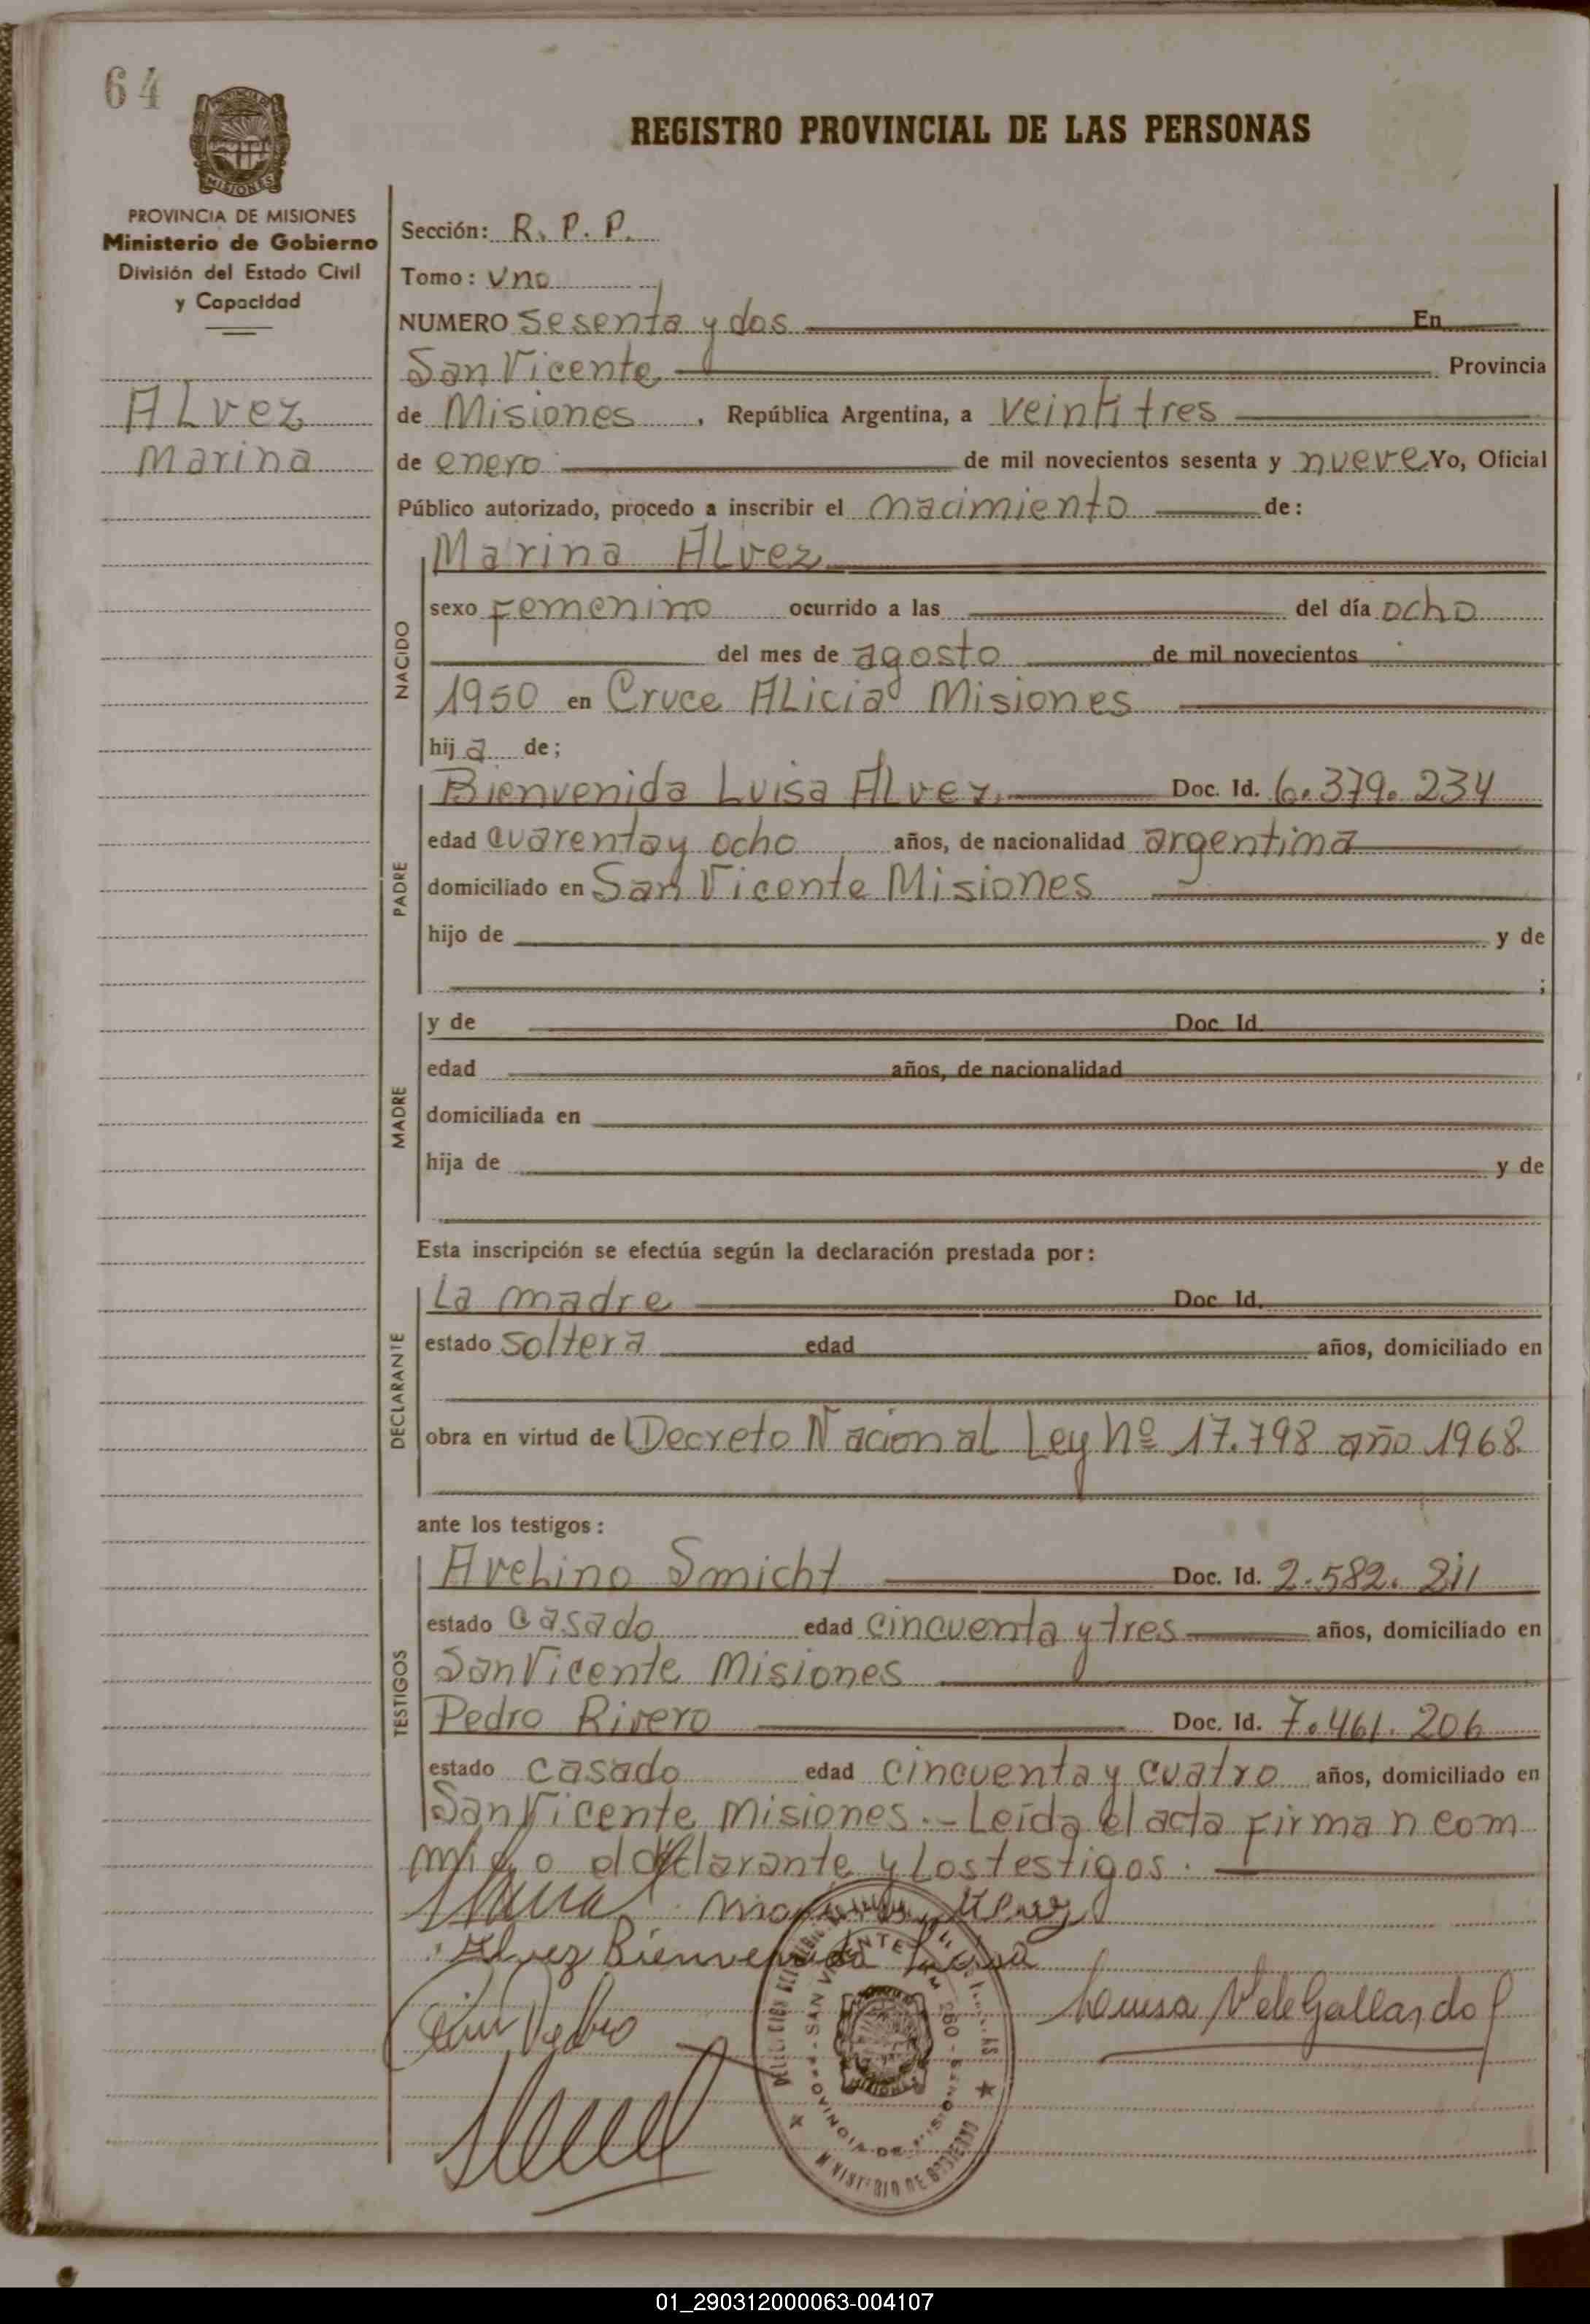 64
REGISTRO PROVINCIAL DE LAS PERSONAS
PROVINCIA DE MISIONES
Ministerio de Gobierno
División del Estado Civil
y Capacidad
ALvez
Marina
Sección: R. P. P.
Tomo: Uno
NUMERO Sesenta y dos En
San Vicente Provincia
de Misiones, República Argentina, a veintitres
de enero de mil novecientos sesenta y nueve Yo, Oficial
Público autorizado, procedo a inscribir el nacimiento de:
NACIDO
Marina ALvez
sexo Femenino ocurrido a las del día ocho
del mes de agosto de mil novecientos
1950 en Cruce ALicia Misiones
hija de;
PADRE
Bienvenida Luisa ALvez Doc. Id. 6.379.234
edad cuarenta y ocho años, de nacionalidad argentina
domiciliado en San Vicente Misiones
hijo de y de
;
MADRE
y de Doc. Id.
edad años, de nacionalidad
domiciliada en
hija de y de
Esta inscripción se efectúa según la declaración prestada por:
DECLARANTE
La madre Doc. Id.
estado soltera edad años, domiciliado en
obra en virtud de Decreto Nacional Ley Nº 17.798 año 1968
ante los testigos:
TESTIGOS
AveLino Smicht Doc. Id. 2.582.211
estado casado edad cincuenta y tres años, domiciliado en
San Vicente Misiones
Pedro Rivero Doc. Id. 7.461.206
estado casado edad cincuenta y cuatro años, domiciliado en
San Vicente Misiones.- Leída el acta Firman com
migo el declarante y Los testigos.
Alvez Bienvenida Luisa
Luisa V de Gallardo
SAN VICENTE
PROVINCIA DE MISIONES
MINISTERIO DE GOBIERNO
01_290312000063-004107